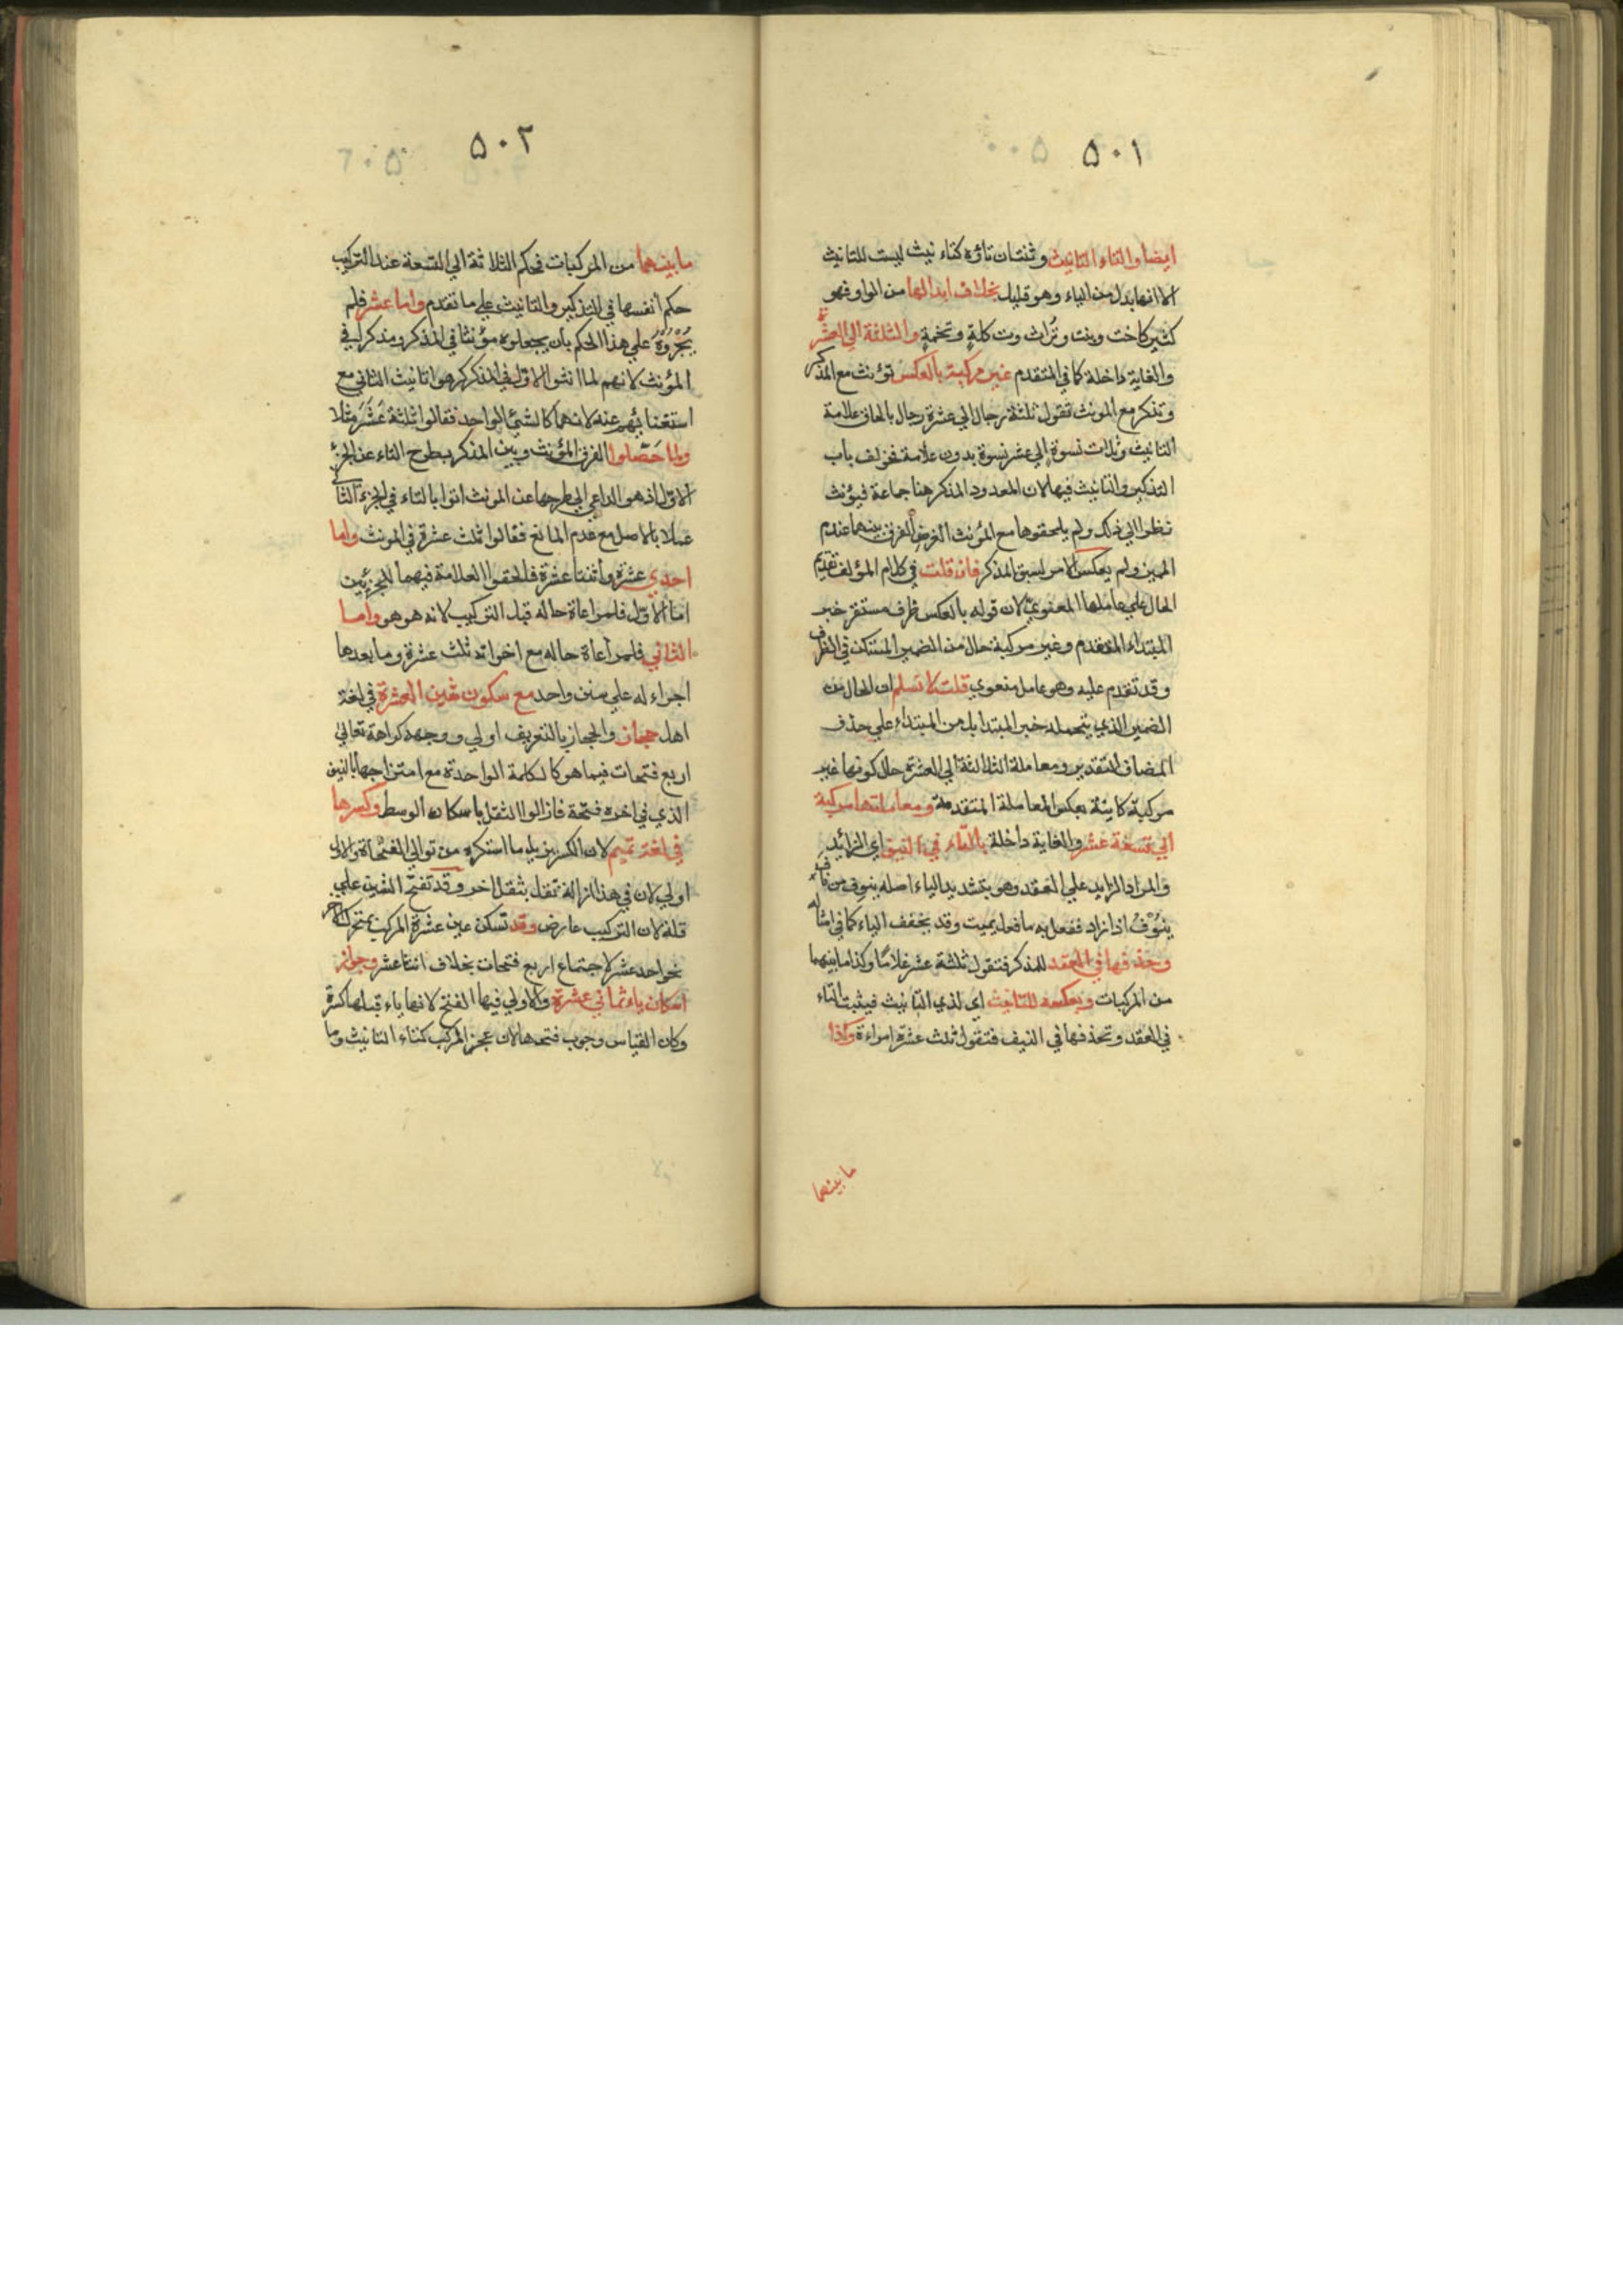 ٥٠١
ايضا والتاء للتانيث وثنتان تاؤه كتاء نيث ليست للتانيث
الا انها بدل من الياء وهو قليل بخلاف ابدالها من الواو فهو
كثير كاخت وبنت وتُراث وت كلةٍ وتخمةٍ والثلثة الى العشرة
والغاية داخلة كما في المتقدم غير مركبة بالعكس تؤنث مع المذكر
وتذكر مع المونث تقول ثلثة رجال الي عشرة رجال بالحاق علامة
التانيث وثلاث نسوة الي عشر نسوة بدون علامة فخولف باب
التذكير والتانيث فيها لان المعدود المذكر هنا جماعة فيؤنث
نظرا الي ذلك ولم يلحقوها مع المؤنث الغرض الفرق بينهما عندم
المميز ولم يعكس الامر لسبق المذكر فان قلت في كلام المؤلف تقديم
الحال علي عاملها المعنوي لان قوله بالعكس ظرف مستقر خبر
المبتداء المتقدم وغير مركبة حال من الضمير المستكن في الظرف
وقد تقدم عليه وهو عامل معنوي قلت لا نسلم ان الحال من
الضمير الذي يتحمله خبر المبتدا بل من المبتداء علي حذف
المضاف للتقدير ومعاملة الثلاثة الي العشرة حال كونها غير
مركبة كاينة بعكس المعاملة المتقدمة ومعاملتها مركبة
الي تسعة عشر والغاية داخلة بالتاء في النيف اي الزائد
والمراد الزايد علي العقد وهو بتشديد الياء اصله ينيوف من ناف
ينُوْفُ اذا زاد ففعل به ما فعل بميت وقد يخفف الياء كما في امثاله
وحذفها في العقد للمذكر فتقول ثلثة عشر غلامًا وكذا ما بينهما
من المركبات وبعكسه للتانيث اي لذي التانيث فيثبت التاء
في العقد وتحذفها في النيف فتقول ثلث عشرة امراءة وكذا
ما بينهما
٥٠٢
ما بينهما من المركبات فحكم الثلاثة الي التسعة عند التركيب
حكم انفسها في التذكير والتانيث علي ما تقدم واما عشر فلم
يُجْرُوْهُ علي هذا الحكم بان يجعلوه مؤنثا في المذكر ومذكرا في
المؤنث لانهم لما انثوا الاول في المذكر كرهوا تانيث الثاني مع
استغنائهم عنه لانهما كالشئ الواحد فقالوا ثلثة عَشَرَ مثلا
ولما حَصَّلوا الفرق المؤنث وبين المذكر بطرح التاء عن الجزء
الاول اذ هو الداعي الي طرحها عن المونث اتوا بالتاء في الجزء الثاني
عملا بالاصل مع عدم المانع فقالوا ثلث عشرة في المونث واما
احدي عشرة واثنتا عشرة فالحقوا العلامة فيهما للجزئين
اما الاول فلمراعاة حاله قبل التركيب لانه هو هو واما
الثاني فلمراعاة حاله مع اخواته ثلث عشرة وما بعدها
اجراء له علي سنن واحد مع سكون شين العشرة في لغة
اهل حجاز والحجاز بالتعريف اولي ووجهه كراهة توالي
اربع فتحات فيما هو كالكلمة الواحدة مع امتزاجها بالنيف
الذي في اخره فتحة فازالوا الثقل باسكان الوسط وكسرها
في لغة تميم لان الكسر يزيله ما استكره من توالي الفتحاة والاولي
اولي لان في هذا ازالة ثقل بثقل اخر وقد تفتح الشين علي
قلة لان التركيب عارض وقد تسكن عين عشرة المركب بمتحرك الاخر
نحو احد عشر لاجتماع اربع فتحات بخلاف اثنتا عشر وجواز
اسكان ياء ثماني عشرة والاولي فيها الفتح لانها ياء قبلها كسرة
وكان القياس وجوب فتحها لان عجز المركب كتاء التانيث وما